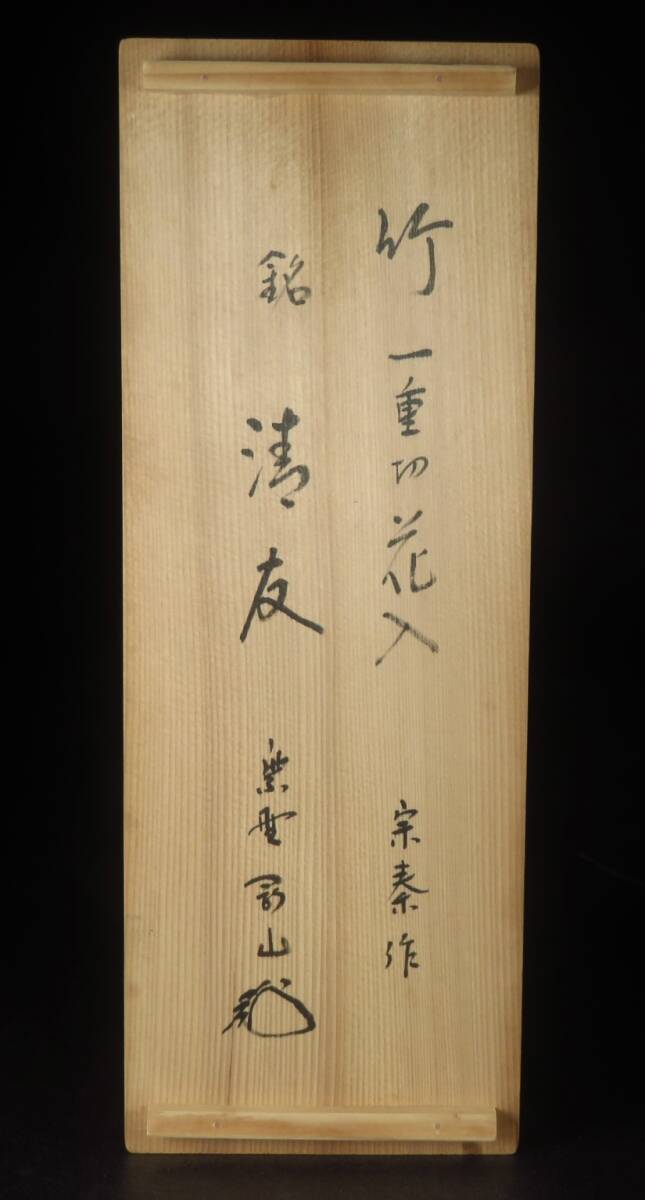 竹 一重切 花入 宗泰作
銘 清友 紫野 山